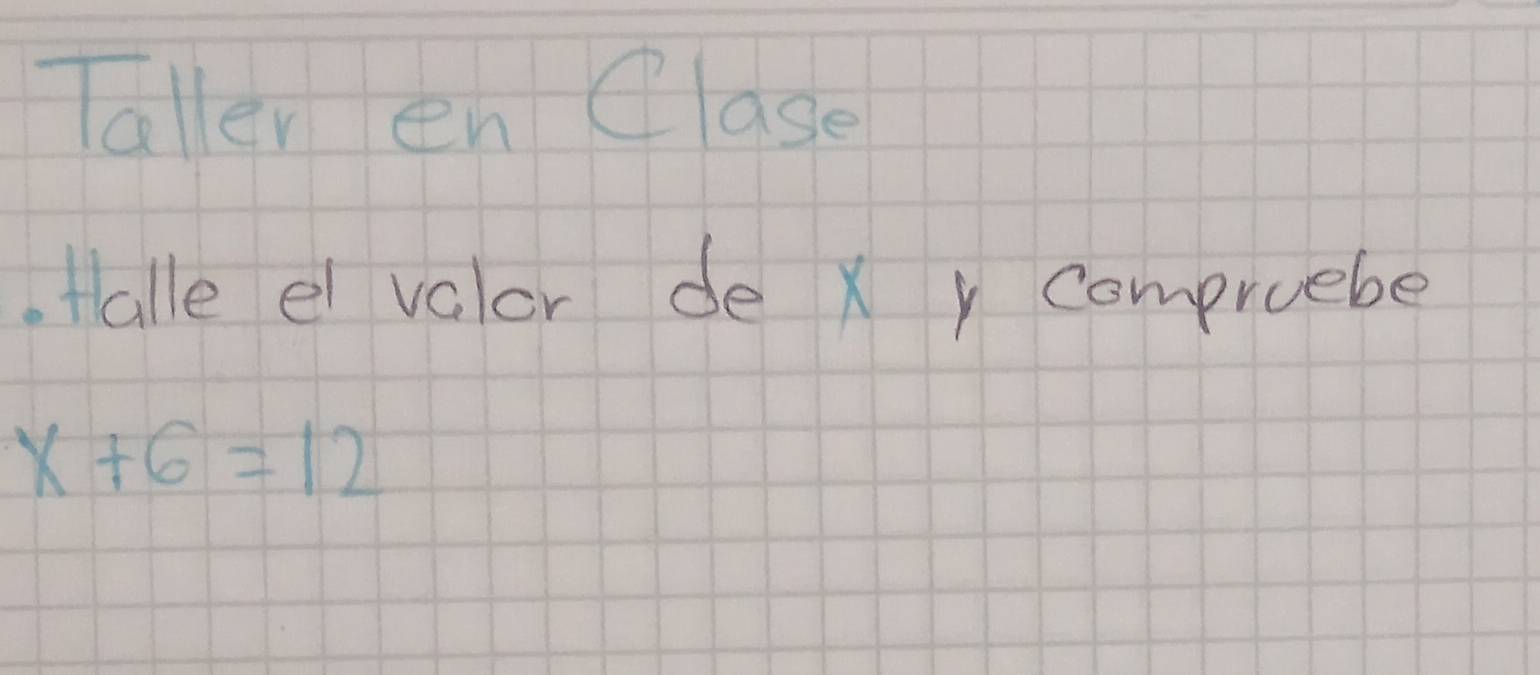 Taller en Clase
. Halle el valor de x y compruebe
x + 6 = 12